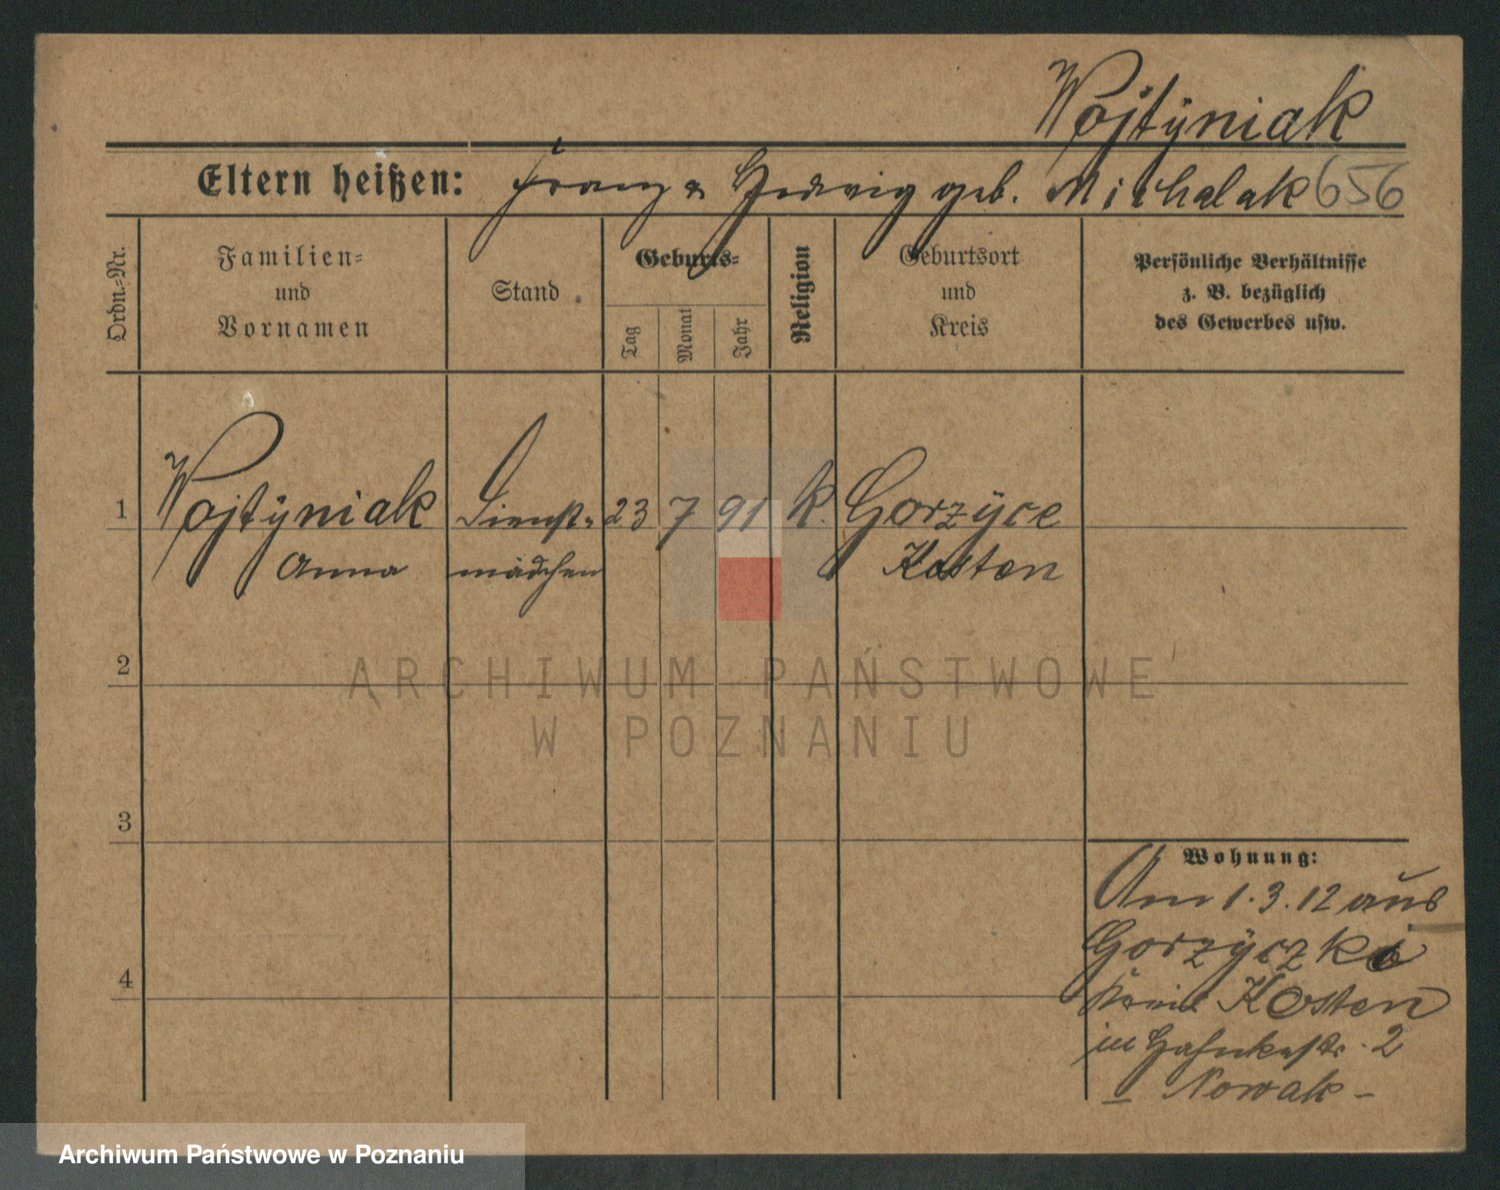 Wojtÿniak
Eltern heißen: Franz u Hedwig geb. Michalak 656
Ordn.-Nr.
Familien-
und
Vornamen
Stand
Geburts-
Tag
Monat
Jahr
Religion
Geburtsort
und
Kreis
Persönliche Verhältnisse
z. B. bezüglich
des Gewerbes usw.
1 Wojtÿniak Dienst- 23 7 91 k. Gorzÿce
Anna mädchen Kosten
2
3
4
Wohnung:
Am 1.3.12 aus
Gorzÿczki
Kreis Kosten
in 2
I Nowak -
ARCHIWUM PAŃSTWOWE
W POZNANIU
Archiwum Państwowe w Poznaniu